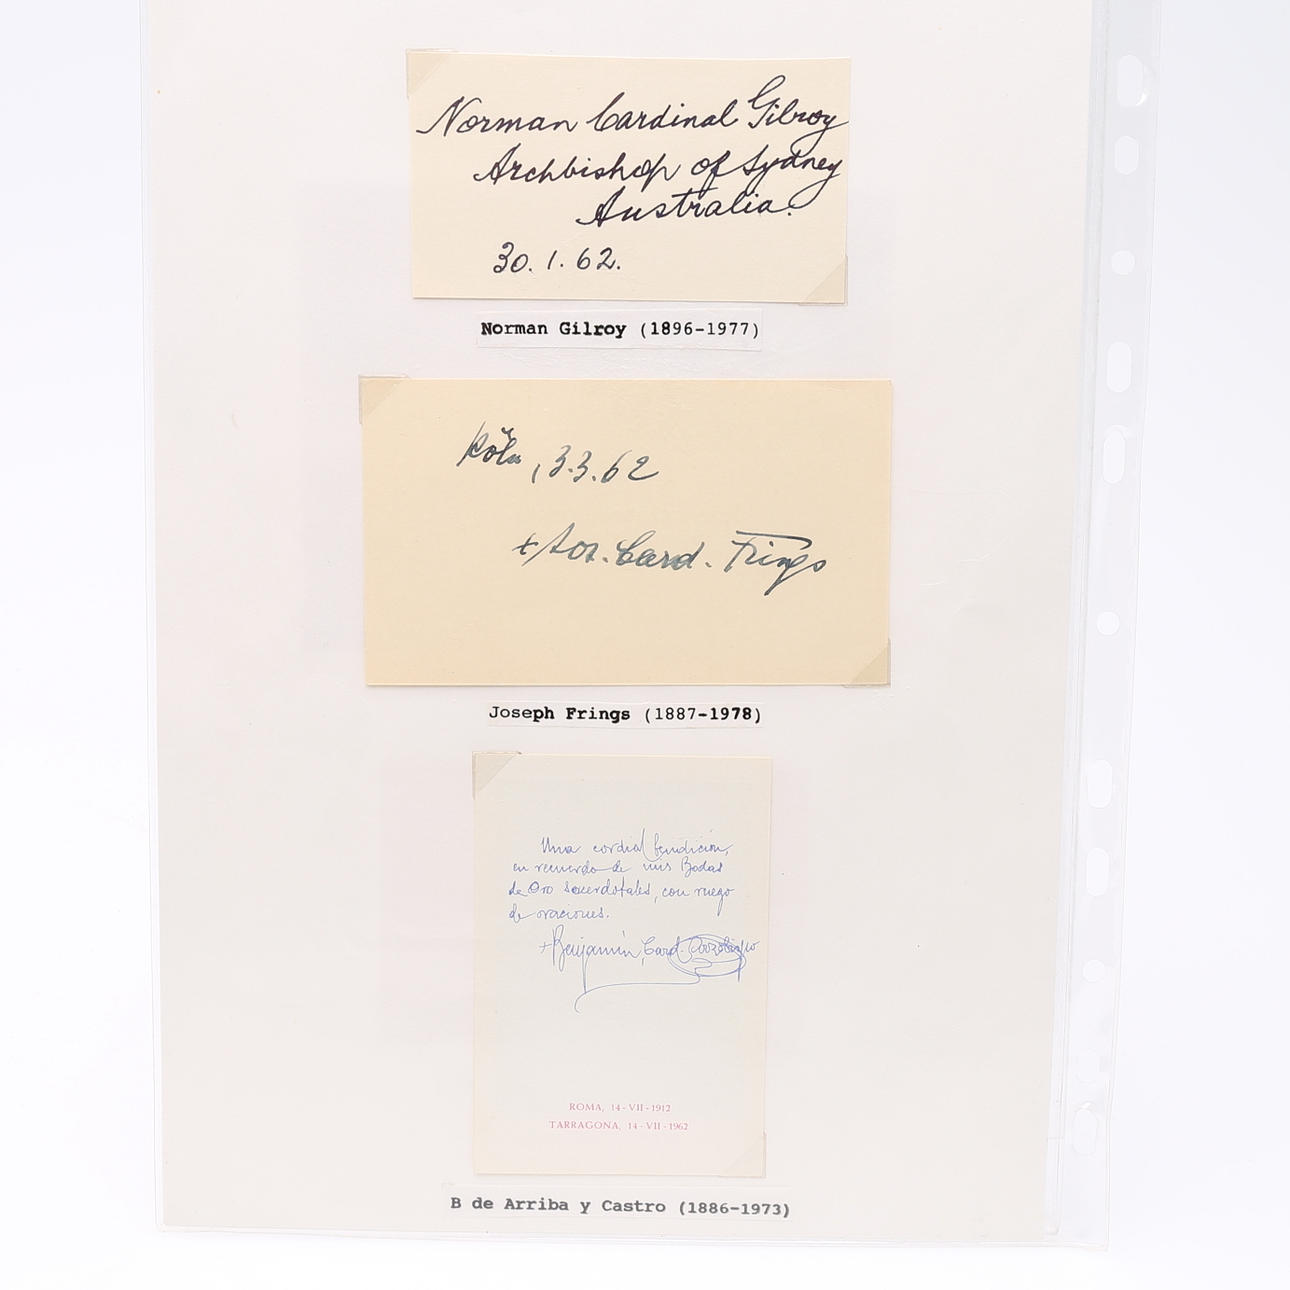 Norman Cardinal Gilroy
Archbishop of Sydney
Australia.
30. 1. 62.
Norman Gilroy (1896-1977)
Köln, 3.3.62
+ Jos. Card. Frings
Joseph Frings (1887-1978)
Una cordial bendición,
en recuerdo de mis Bodas
de Oro sacerdotales, con ruego
de oraciones.
+Benjamín, Card. Arzobispo
ROMA, 14-VII-1912
TARRAGONA, 14-VII-1962
B de Arriba y Castro (1886-1973)